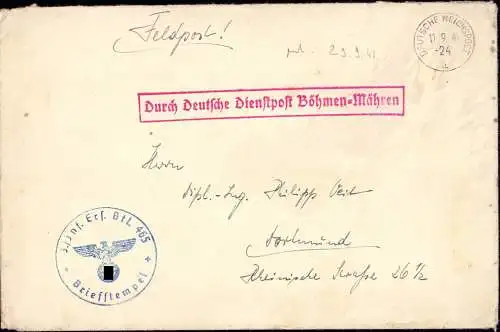 Feldpost!
DEUTSCHE REICHSPOST
11.9.41
-24
23.9.41
Durch Deutsche Dienstpost Böhmen-Mähren
Herrn
Dipl.-Ing. Philipp Veit
Dortmund
Rheinische Straße 26 1/2
Inf. Ers. Btl. 465
Briefstempel